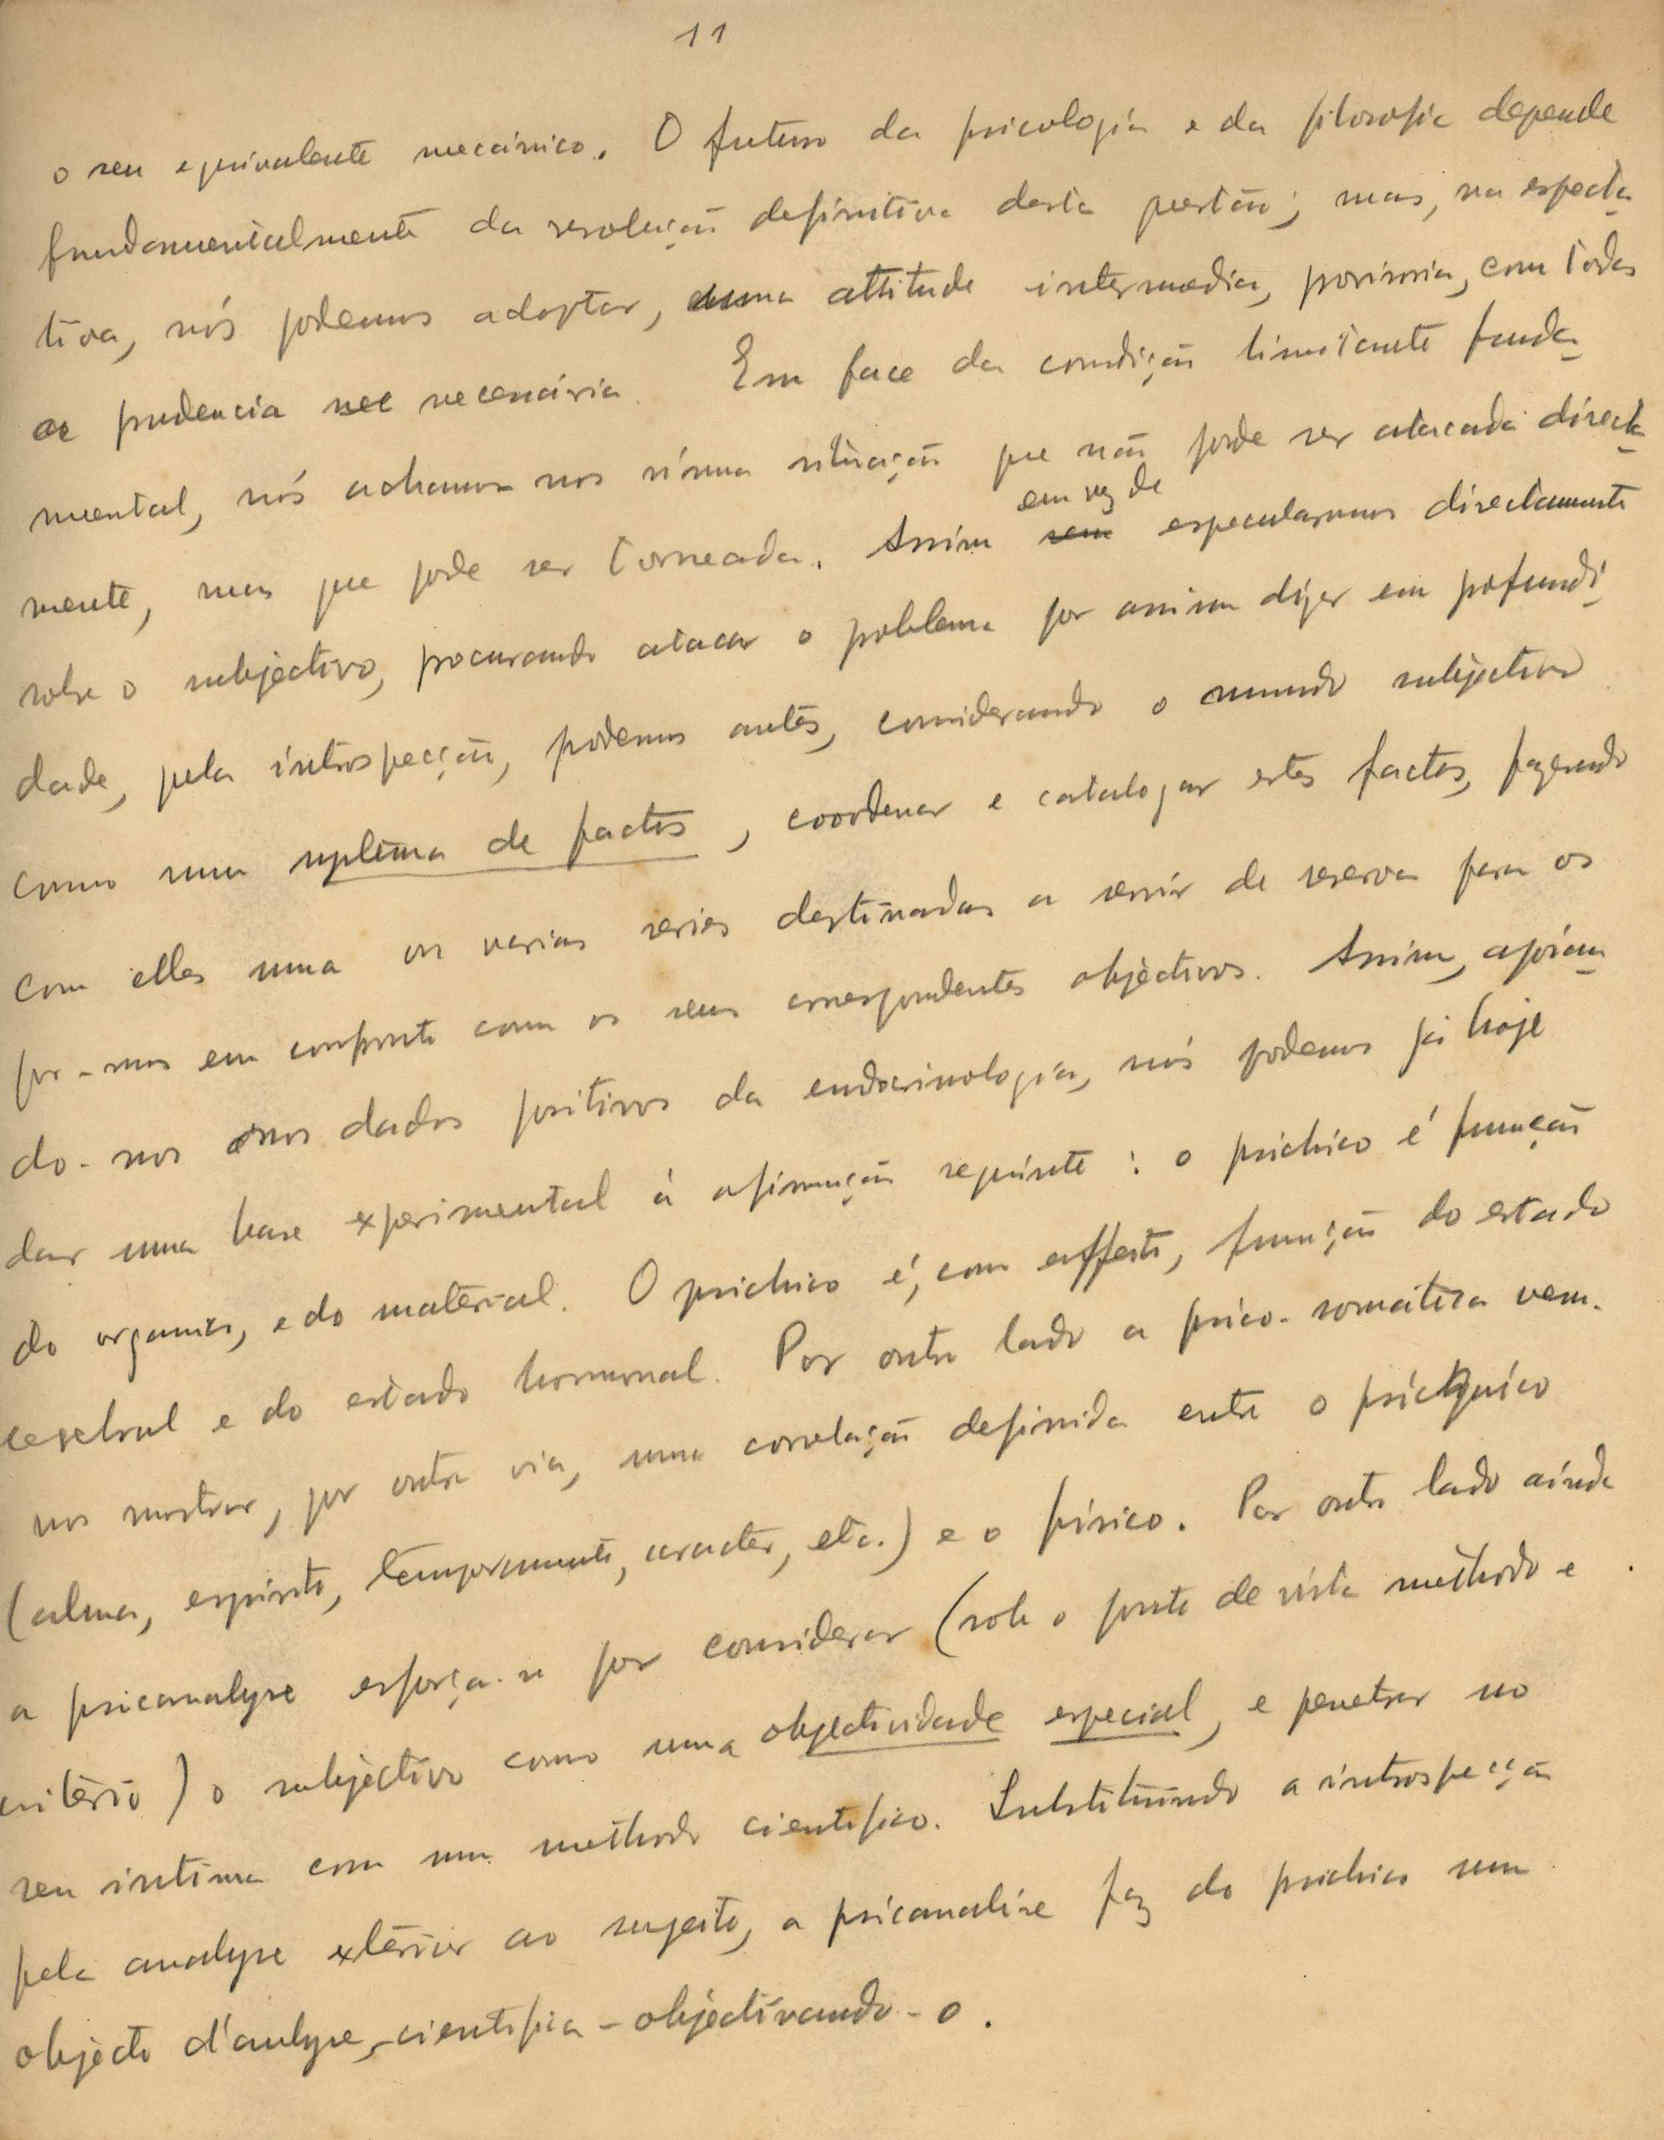 11
o seu equivalente mecánico. O futuro da psicologia e da filosofia depende
fundamentalmente da resolução definitiva desta questão; mas, na especta-
tiva, nós podemos adoptar, uma attitude intermedia, provisoria, com toda
a prudencia nec necessária. Em face da condição limitante funda-
mental, nós achamo-nos n'uma situação que não pode ser atacada directa-
mente, mas que pode ser torneada. Assim sem em vez de especularmos directamente
sobre o subjectivo, procurando atacar o problema por assim dizer em profundi-
dade, pela introspecção, podemos antes, considerando o mundo subjectivo
como um systema de factos, coordenar e catalogar estes factos, fazendo
com elles uma ou varias series destinadas a servir de reserva para os
por-mos em confronto com os seus correspondentes objectivos. Assim, apoian-
do-nos nos dados positivos da endocrinologia, nós podemos já hoje
dar uma base experimental á afirmação seguinte: o psichico é função
do organico, e do material. O psichico é, com effeito, função do estado
cerebral e do estado hormonal. Por outro lado a psico-somatica vem-
nos mostrar, por outra via, uma correlação definida entre o psichico
(alma, espirito, temperamento, caracter, etc.) e o fisico. Por outro lado ainda
a psicanalyse esforça-se por considerar (sob o ponto de vista methodo e
criterio) o subjectivo como uma objectividade especial, e penetrar no
seu intimo com um methodo cientifico. Substituindo a introspecção
pela analyse exterior ao sugeito, a psicanalise faz do psichico um
objecto d'analyse, cientifica - objectivando-o.